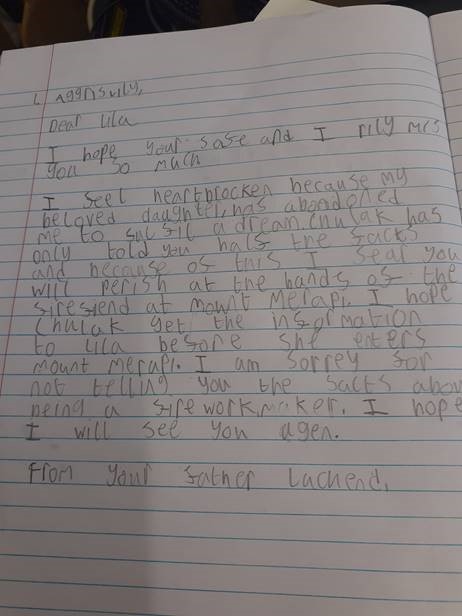 Dear Lila
I hope your safe and I rily mis
you so much
I feel heartbrocken because my
beloved daughter, has abondoned
me to fulfil a dream. Chulak has
only told you half the facts
and because of this I fear you
will perish at the hands of the
firefiend at mount Merapi. I hope
Chulak get the information
to lila before she enters
mount merapi. I am sorrey for
not telling you the facts abou
being a firework,maker. I hope
I will see you agen.
From your father Lachend.